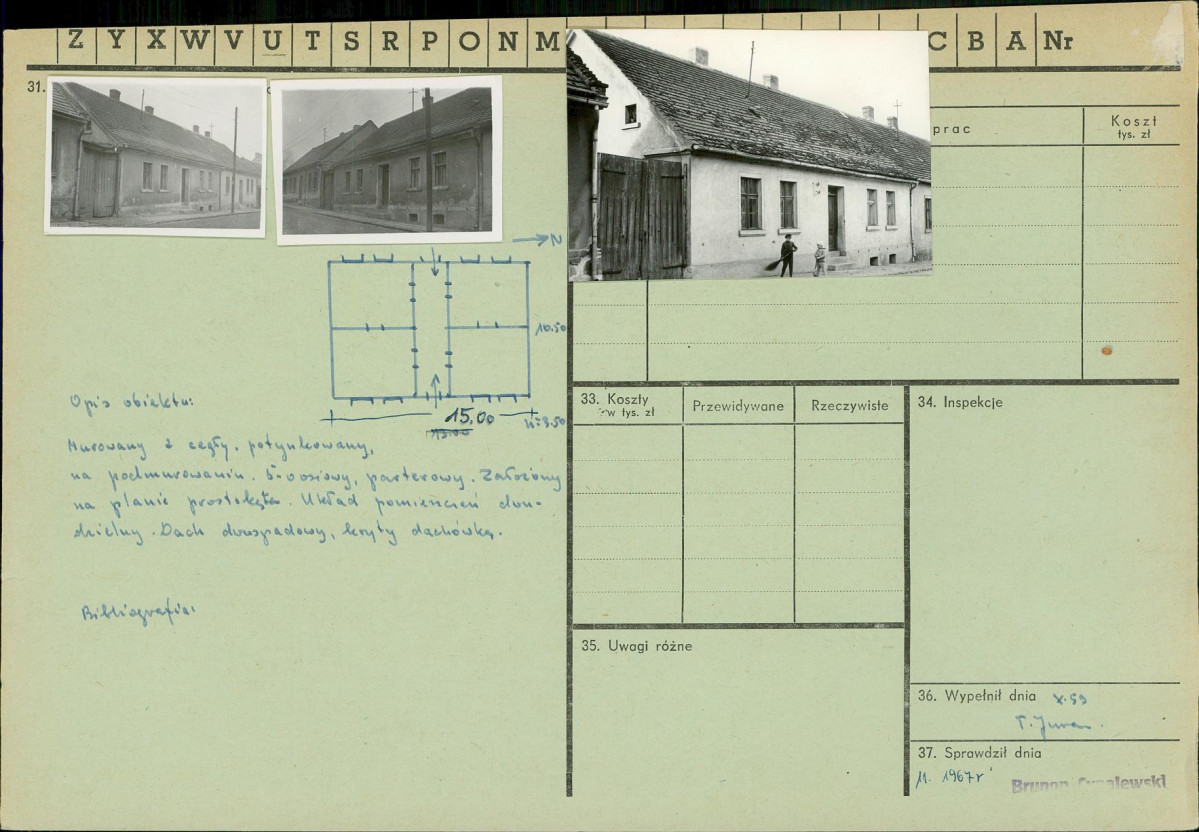 Z Y X W V U T S R P O N M C B A Nr
31.
prac
Koszt
tys. zł
N
10.50
15.00
13.00
H=3.50
Opis obiektu:
Murowany z cegły, potynkowany,
na podmurowaniu. 5-osiowy, parterowy. Założony
na planie prostokąta. Układ pomieszczeń dwu-
dzielny. Dach dwuspadowy, kryty dachówką.
Bibliografia:
33. Koszty
w tys. zł
Przewidywane
Rzeczywiste
34. Inspekcje
35. Uwagi różne
36. Wypełnił dnia X.59
37. Sprawdził dnia
11. 1967 r
Brunon